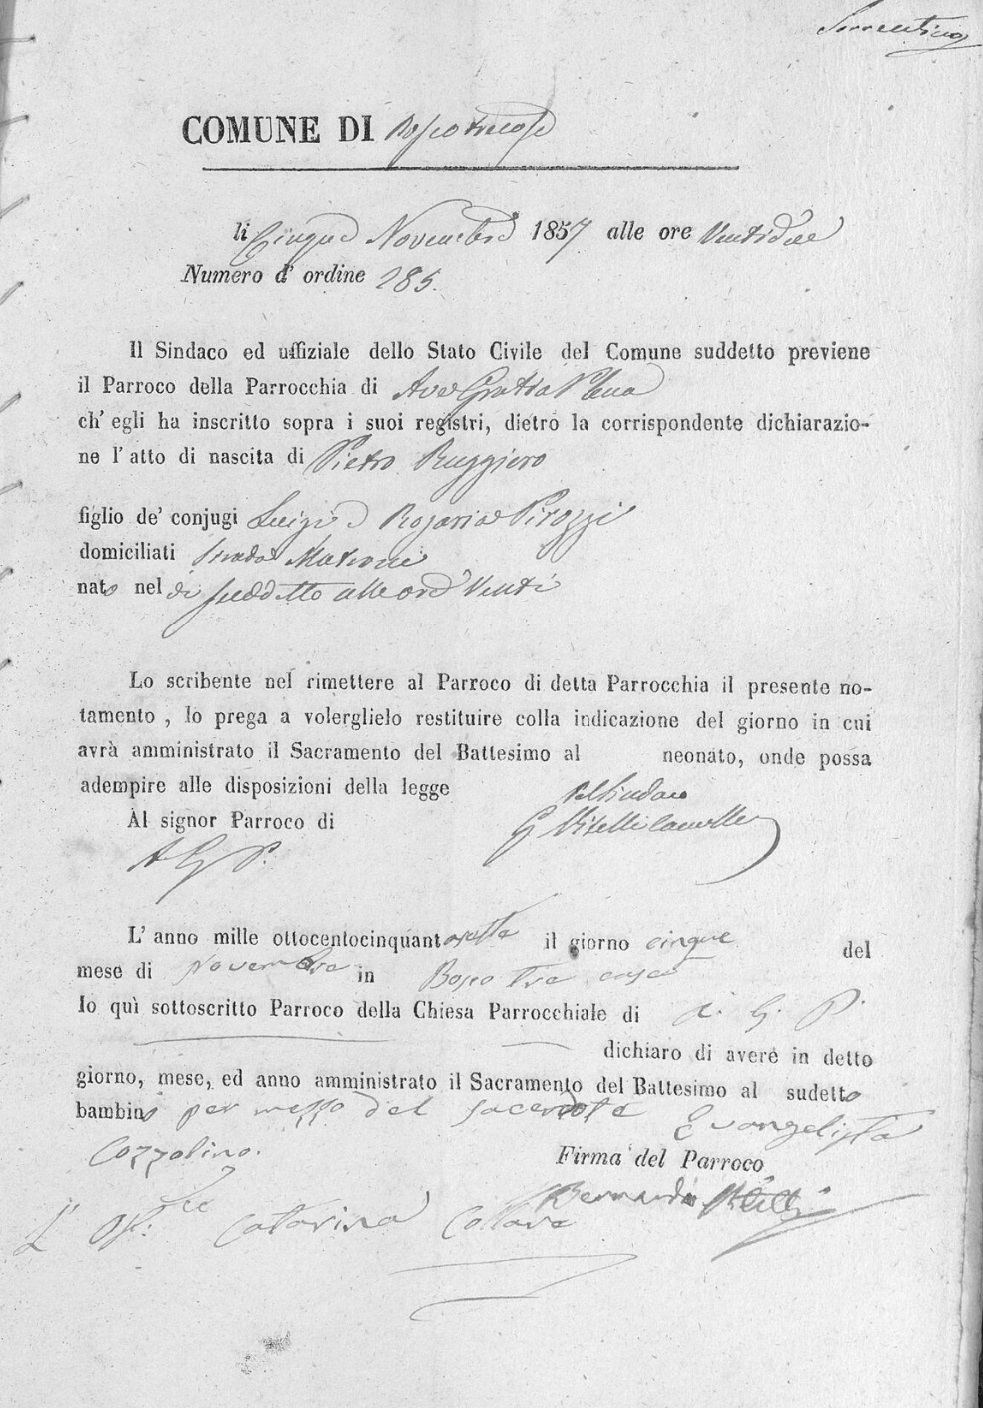 Sorrentino
COMUNE DI Boscotrecase
li Cinque Novembre 1857 alle ore Ventidue
Numero d' ordine 285.
Il Sindaco ed uffiziale dello Stato Civile del Comune suddetto previene
il Parroco della Parrocchia di Ave Gratia Plena
ch' egli ha inscritto sopra i suoi registri, dietro la corrispondente dichiarazio-
ne l' atto di nascita di Pietro Ruggiero
figlio de' conjugi Luigi e Rosaria Pirozzi
domiciliati strada Matrone
nato nel dì suddetto alle ore Venti
Lo scribente nel rimettere al Parroco di detta Parrocchia il presente no-
tamento , lo prega a volerglielo restituire colla indicazione del giorno in cui
avrà amministrato il Sacramento del Battesimo al neonato, onde possa
adempire alle disposizioni della legge
Pel Sindaco
Al signor Parroco di
G Vitelli
A G P.
L' anno mille ottocentocinquantasette il giorno cinque del
mese di Novembre in Bosco Tre case
Io quì sottoscritto Parroco della Chiesa Parrocchiale di A. G. P.
dichiaro di avere in detto
giorno, mese, ed anno amministrato il Sacramento del Battesimo al sudetto
bambino per mezzo del sacerdote Evangelista
Cozzolino.
Firma del Parroco
Bernardo Vitelli
L' Ost. Catarina